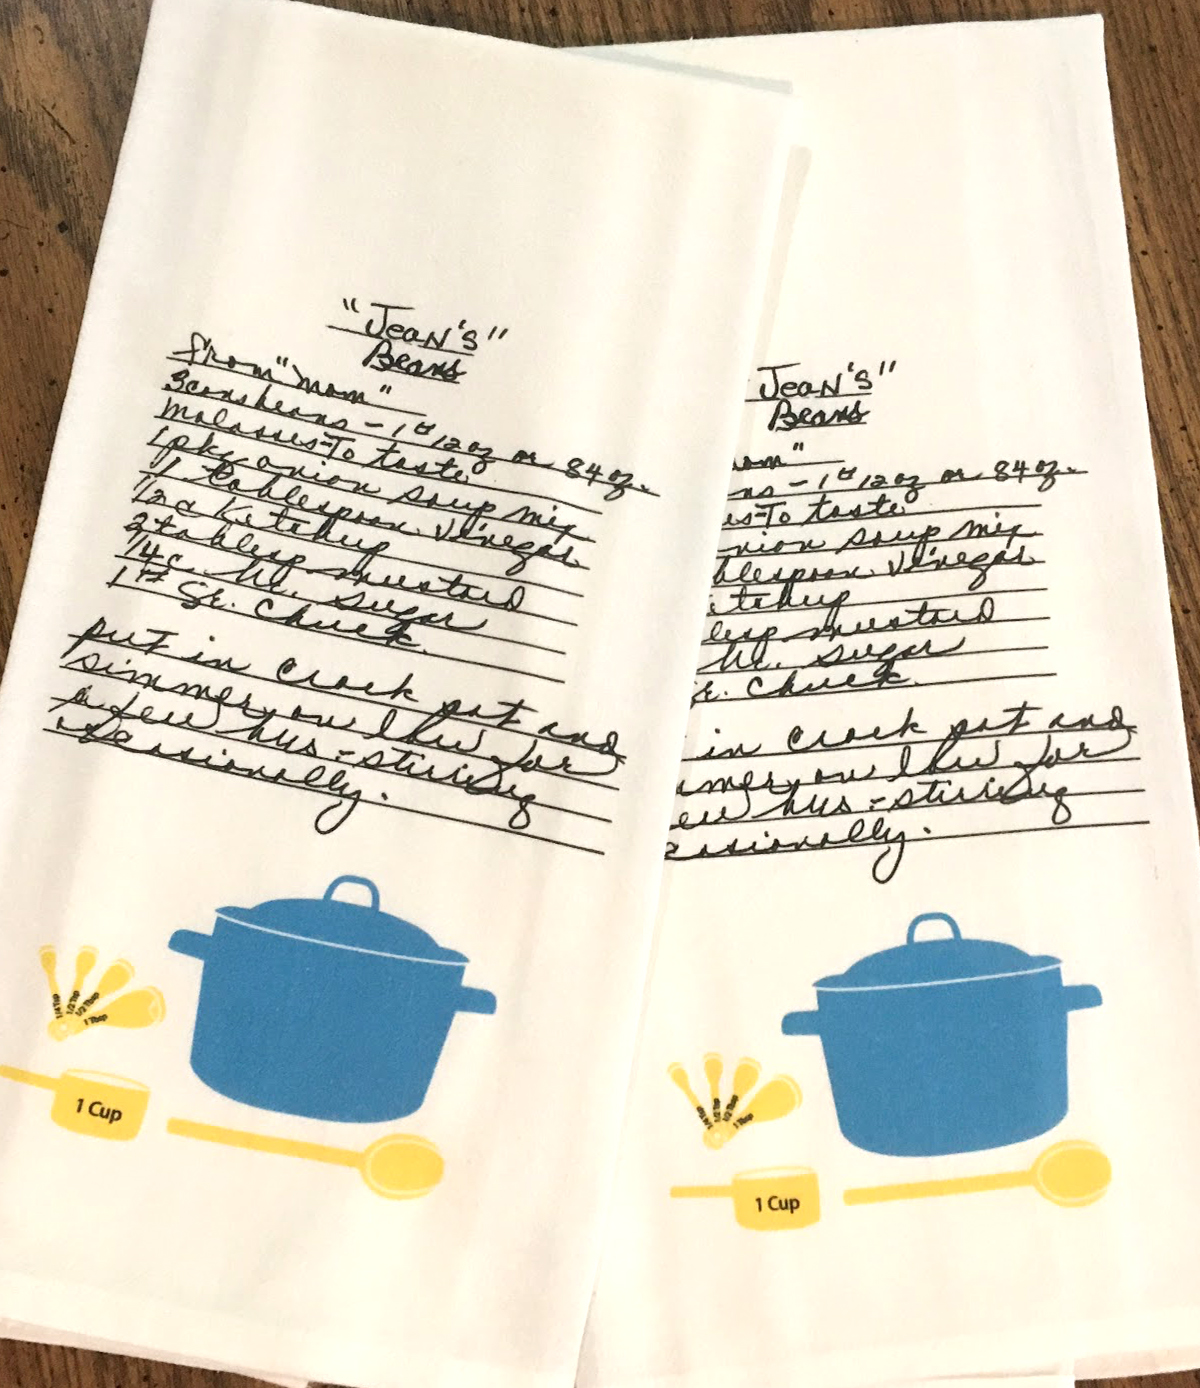 "Jean's"
Beans
from "mom"
3 cans beans - 1# 12oz or 84oz.
Molasses - To taste
1 pkg onion soup mix
1 tablespoon Vinegar
1/2 c Ketchup
2 tablesp mustard
1/4 c sugar
1# Gr. Chuck.
put in crock pot and
simmer on low for
a few hrs - stirring
occasionally.
1/4 Tsp
1/2 Tsp
1/2 Tbsp
1 Tbsp
1 Cup
"Jean's"
Beans
om"
ns - 1# 12oz or 84oz.
es - To taste
nion soup mix
blespoon Vinegar
etchup
lesp mustard
sugar
Gr. Chuck.
in crock pot and
mmer on low for
ew hrs - stirring
casionally.
1/4 Tsp
1/2 Tsp
1/2 Tbsp
1 Tbsp
1 Cup